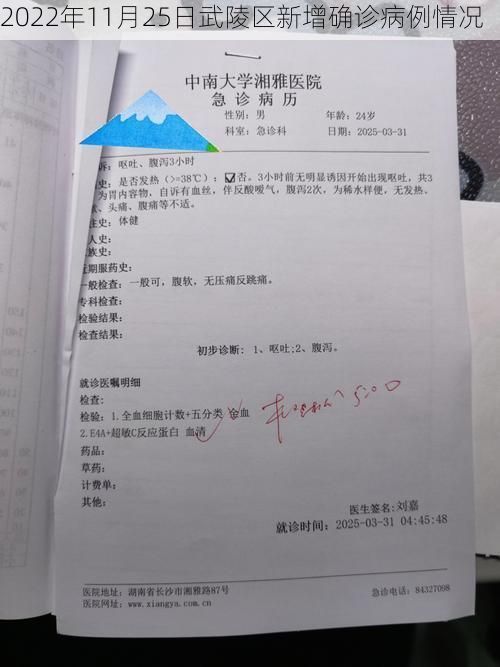 2022年11月25日武陵区新增确诊病例情况
中南大学湘雅医院
急诊病历
性别：男 年龄：24岁
科室：急诊科 日期：2025-03-31
诉：呕吐、腹泻3小时
史：是否发热（>=38℃）：☑否。3小时前无明显诱因开始出现呕吐，共3
为胃内容物，自诉有血丝，伴反酸嗳气，腹泻2次，为稀水样便，无发热、
、头痛、腹痛等不适。
往史：体健
人史：
族史：
近期服药史：
一般检查：一般可，腹软，无压痛反跳痛。
专科检查：
检验结果：
检查结果：
初步诊断：1、呕吐；2、腹泻。
就诊医嘱明细
检查：
检验：1.全血细胞计数+五分类 全血
2.E4A+超敏C反应蛋白 血清
药品：
草药：
计费单：
其他：
医生签名：刘嘉
就诊时间：2025-03-31 04:45:48
医院地址：湖南省长沙市湘雅路87号 急诊电话：84327098
医院网址：www.xiangya.com.cn